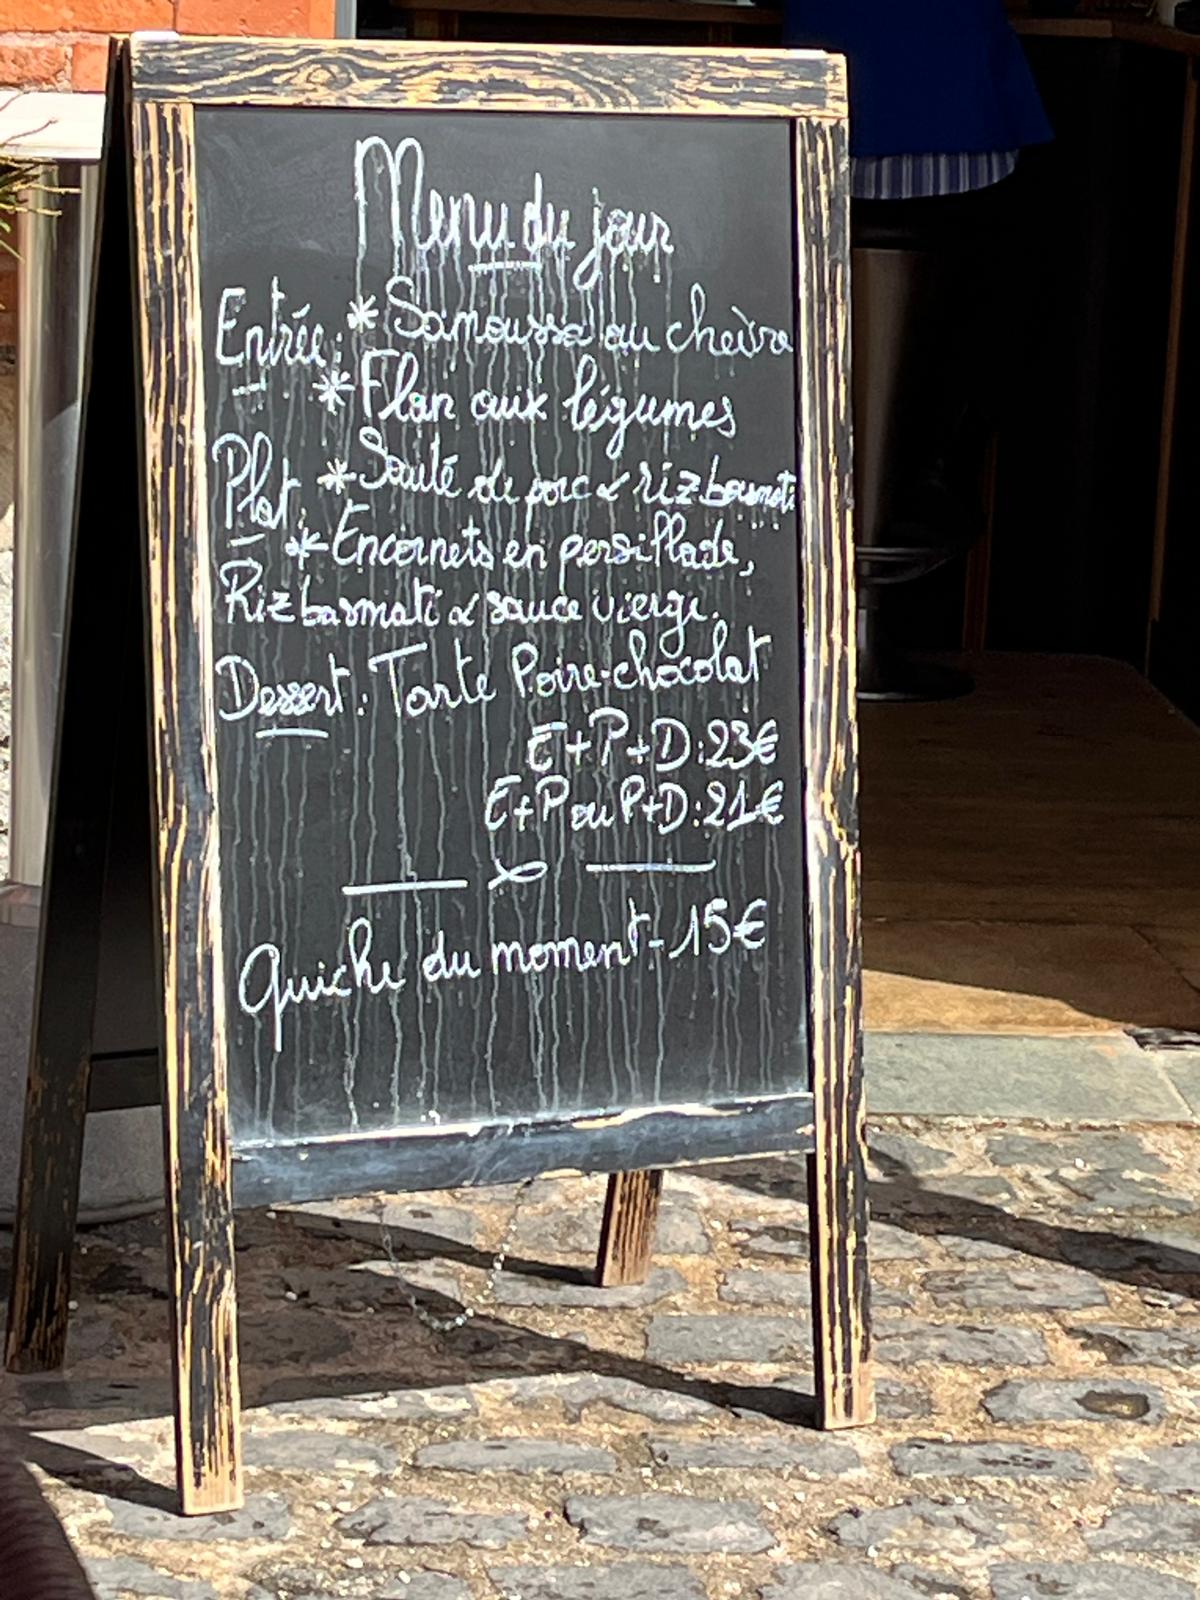 Menu du jour
Entrée: * Samoussa au cheèvre
* Flan aux légumes
Plat: * Sauté de porc & riz basmati
* Encornets en persillade,
Riz basmati & sauce vierge.
Dessert: Tarte Poire-chocolat
E+P+D:23€
E+P ou P+D:21€
Quiche du moment-15€